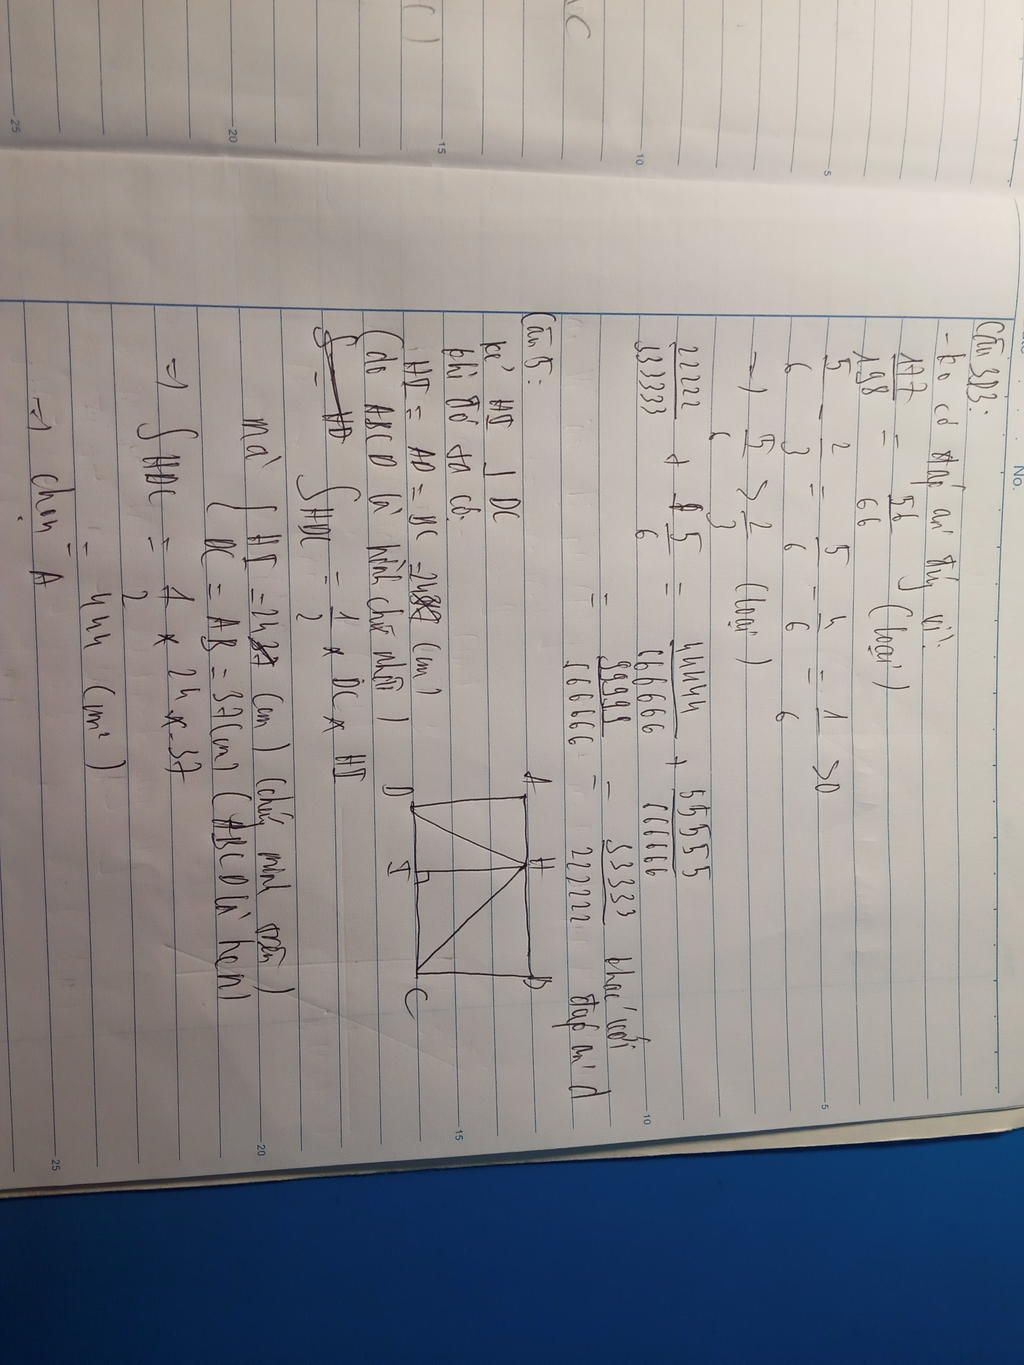 No.
Câu 3D3:
- ko có đáp án đúng vì:
177/198 = 56/66 (loại)
5/6 - 2/3 = 5/6 - 4/6 = 1/6 > 0
→ 5/6 > 2/3 (loại)
22222/333333 + 5/6 = 44444/666666 + 55555/666666
= 99999/666666 = 33333/222222 khác với đáp án d
Câu 5:
kẻ HI ⊥ DC
khi đó ta có
HI = AD = BC = 24 (cm)
(do ABCD là hình chữ nhật)
A H B
D I C
S HDC = 1/2 × DC × HI
mà { HI = 24 (cm) (chứng minh trên)
DC = AB = 37 (cm) (ABCD là hcn)
→ S HDC = 1/2 × 24 × 37
= 444 (cm²)
→ chọn A
5
10
15
20
25
5
10
15
20
25